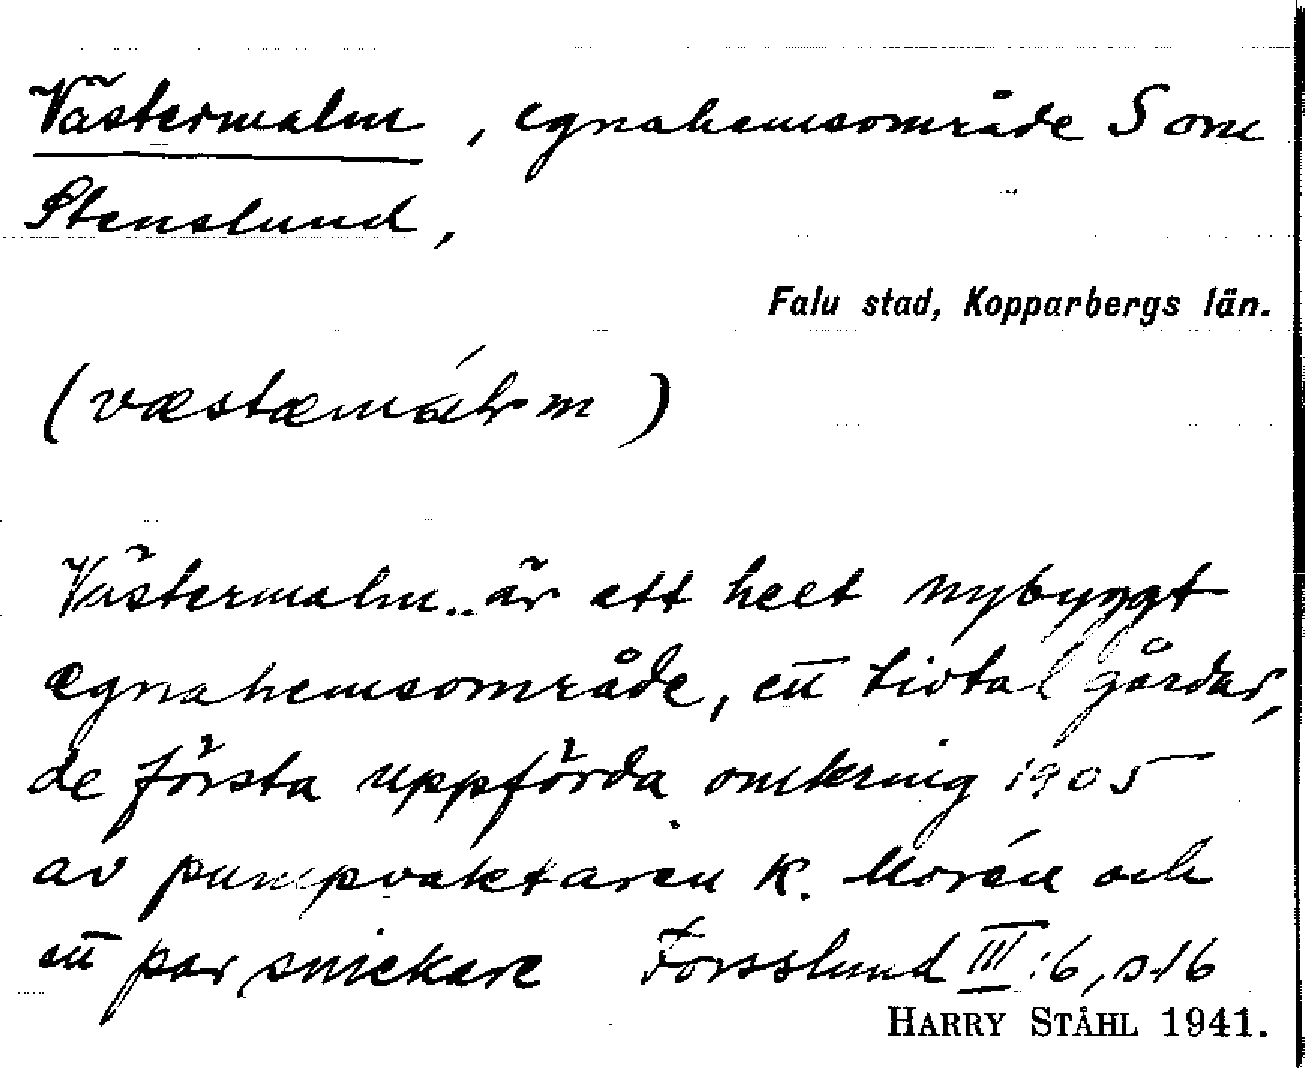 Västermalm, egnahemsområde S om
Stenslund,
Falu stad, Kopparbergs län.
Västermalm.. är ett helt nybyggt
egnahemsområde, ett tiotal gårdar,
de första uppförda omkring 1905
av pumpvaktaren K. Morén och
ett par snickare Forsslund III:6, s.16
HARRY STÅHL 1941.